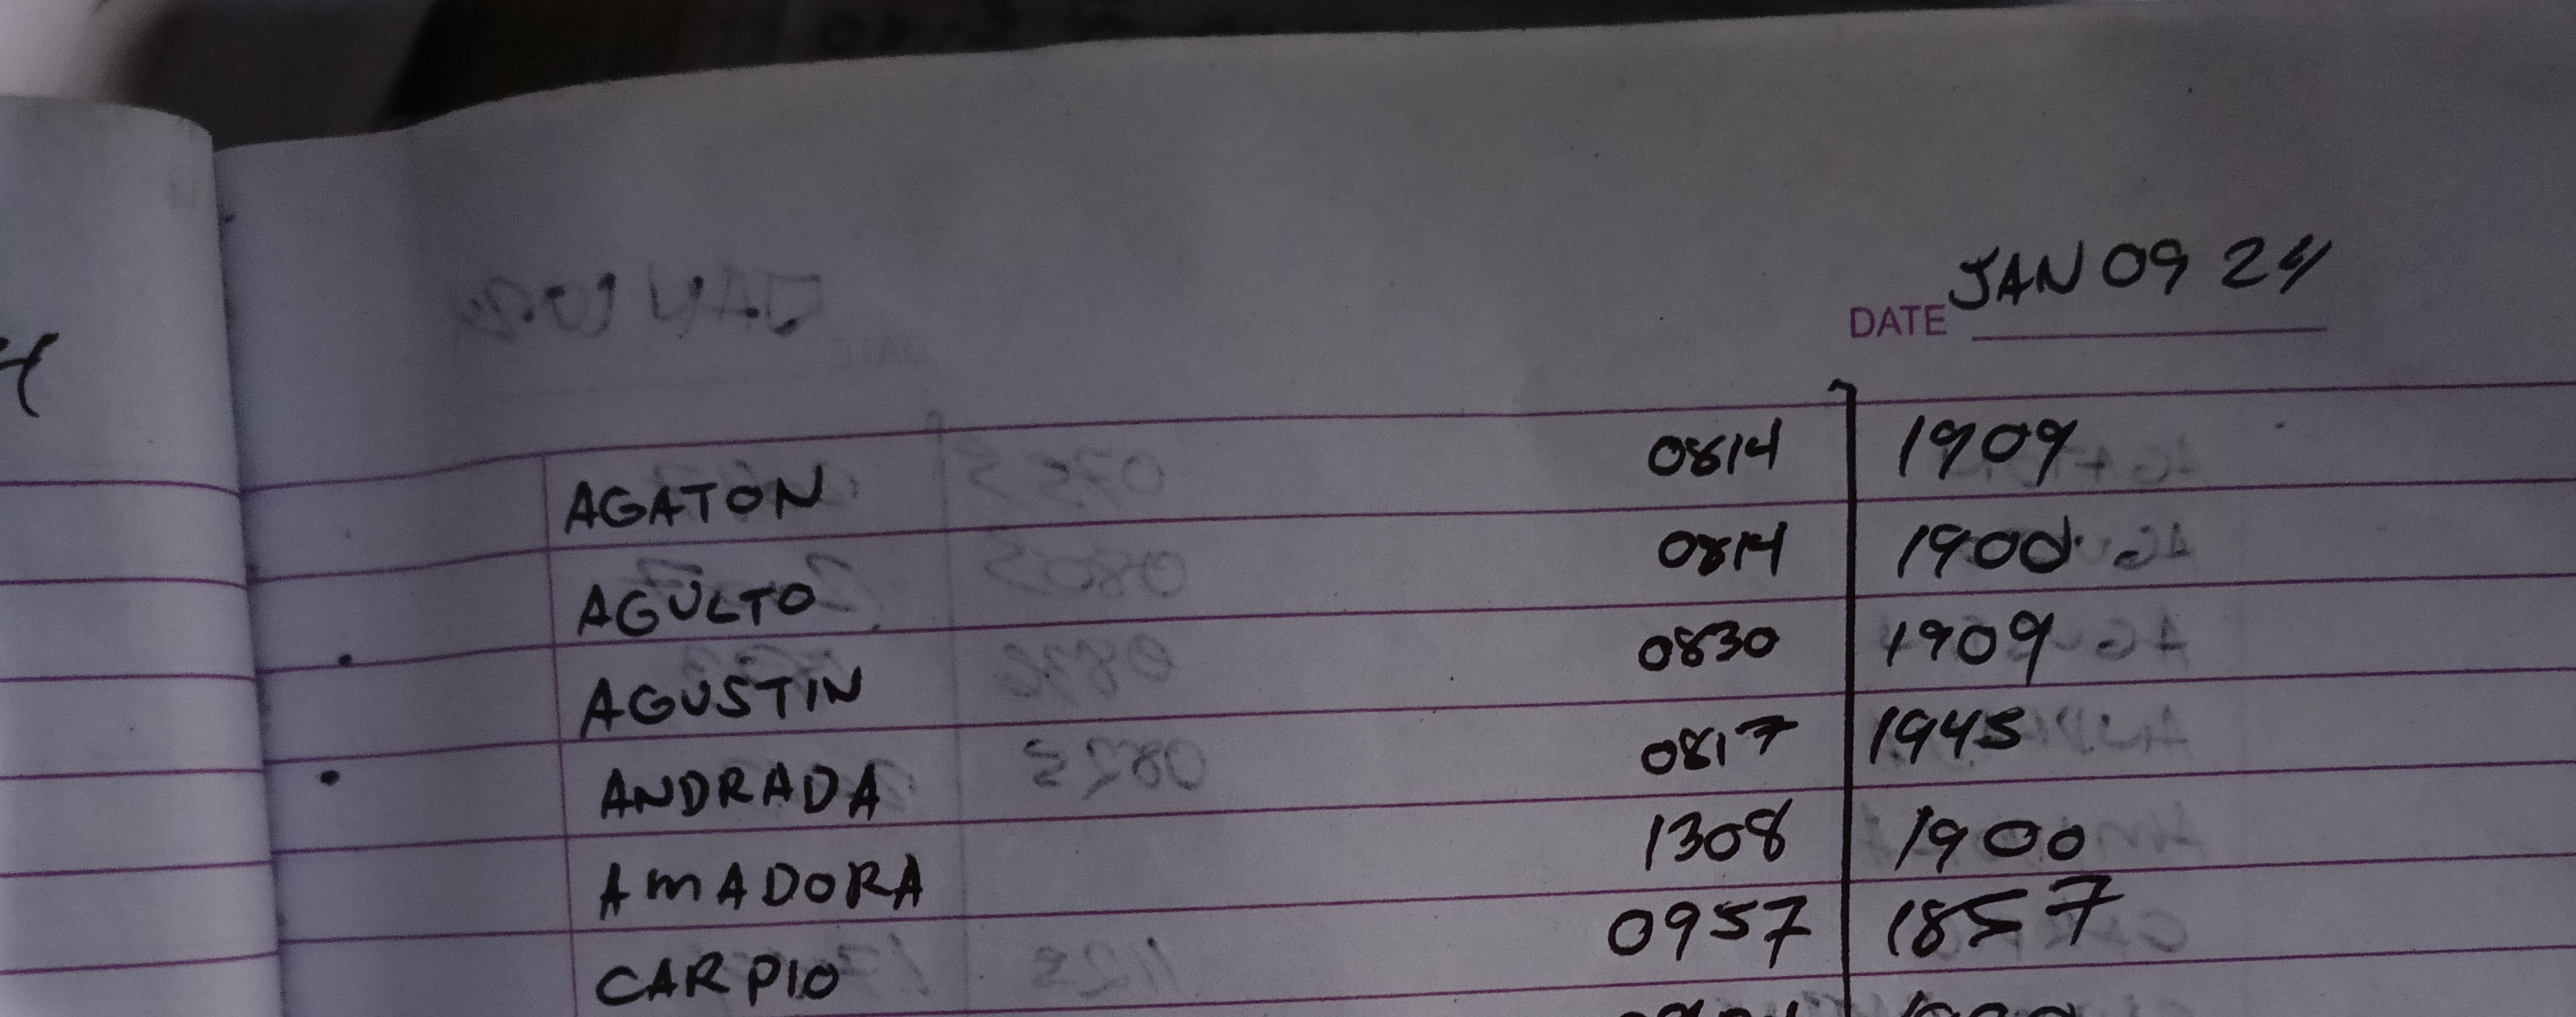 DATE JAN 09 24
AGATON 0814 1909
AGULTO 0814 1900
AGUSTIN 0830 1909
ANDRADA 0817 1945
AMADORA 1308 1900
CARPIO 0957 1857